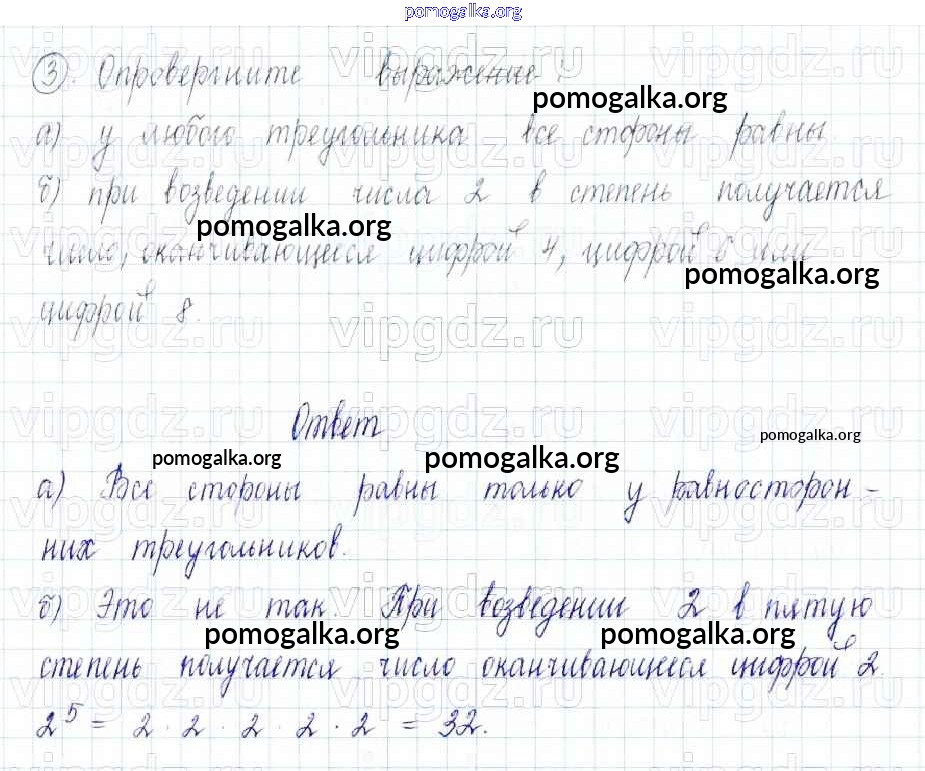 pomogalka.org
③. Опровергните выражение:
pomogalka.org
а) у любого треугольника все стороны равны.
б) при возведении числа 2 в степень получается
pomogalka.org
число, оканчивающееся цифрой 4, цифрой 6 или
pomogalka.org
цифрой 8.
vipgdz.ru vipgdz.ru vipgdz.ru
Ответ
pomogalka.org
pomogalka.org pomogalka.org
а) Все стороны равны только у равносторон-
них треугольников.
б) Это не так. При возведении 2 в пятую
pomogalka.org pomogalka.org
степень получается число оканчивающееся цифрой 2.
2⁵ = 2 · 2 · 2 · 2 · 2 = 32.